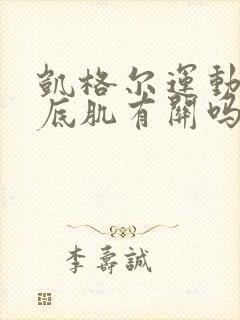 凱格尔運動
底肌有關吗
李壽誠